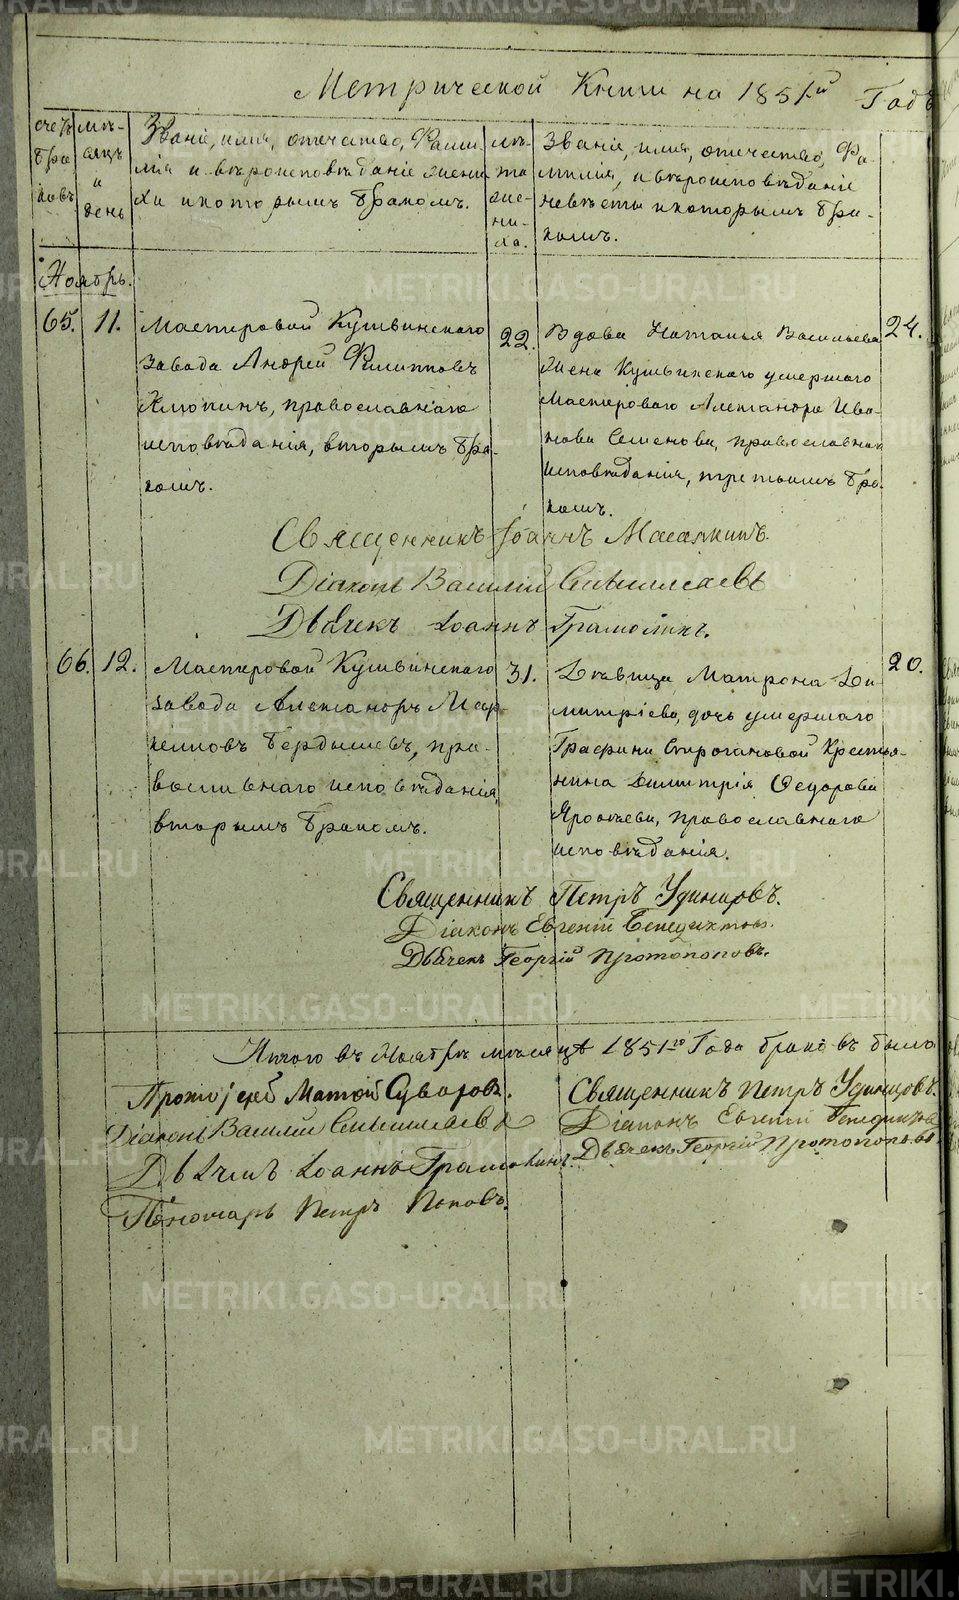 Метрической Книги на 1851й Годъ
счетъ браковъ
мѣсяцъ и день
Званіе, имя, отчество, Фами-
лія и вѣроисповѣданіе жени-
ха и которымъ бракомъ.
лѣта жениха.
Званіе, имя, отчество, Фа-
милія, и вѣроисповѣданіе
невѣсты и которымъ бра-
комъ.
Ноябрь.
65. 11.
Мастеровой Кушвинскаго
завода Андрей Филипповъ
Хлюпинъ, православнаго
исповѣданія, вторымъ бра-
комъ.
22.
Вдова Наталья Васильева
жена Кушвинскаго умершаго
Мастероваго Александра Ива-
нова Семенова, православнаго
исповѣданія, третьимъ бра-
комъ.
24.
Священникъ Іоаннъ
Діаконъ Василій
Дьячекъ Іоаннъ
66. 12.
Мастеровой Кушвинскаго
завода Александръ Мар-
келловъ Бердышевъ, пра-
вославнаго исповѣданія,
вторымъ бракомъ.
31.
Дѣвица Матрона Ди-
митріева, дочь умершаго
Графини Строгановой Крестья-
нина Димитрія Ѳедорова
православнаго
исповѣданія.
20.
Священникъ Петръ Удинцовъ.
Діаконъ Евгеній Бенедиктовъ.
Дьячекъ Георгій Протопоповъ.
Итого въ Ноябрѣ мѣсяцѣ 1851го Года браковъ было
Протоіерей Матѳій Суворовъ.
Діаконъ Василій
Дьячекъ Іоаннъ
Пономарь Петръ Поповъ.
Священникъ Петръ Удинцовъ.
Діаконъ Евгеній Бенедиктовъ
Дьячекъ Георгій Протопоповъ.
METRIKI.GASO-URAL.RU